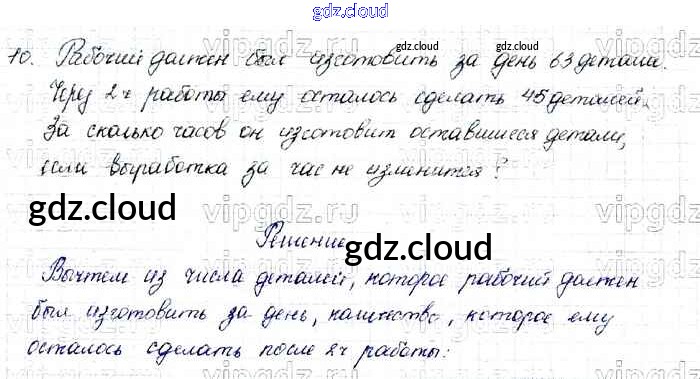 gdz.cloud
10. Рабочий должен был изготовить за день 63 детали.
gdz.cloud gdz.cloud
Через 2 ч работы ему осталось сделать 45 деталей.
За сколько часов он изготовит оставшиеся детали,
если выработка за час не изменится?
gdz.cloud
Решение
gdz.cloud
Вычтем из числа деталей, которое рабочий должен
был изготовить за день, количество, которое ему
осталось сделать после 2 ч работы: